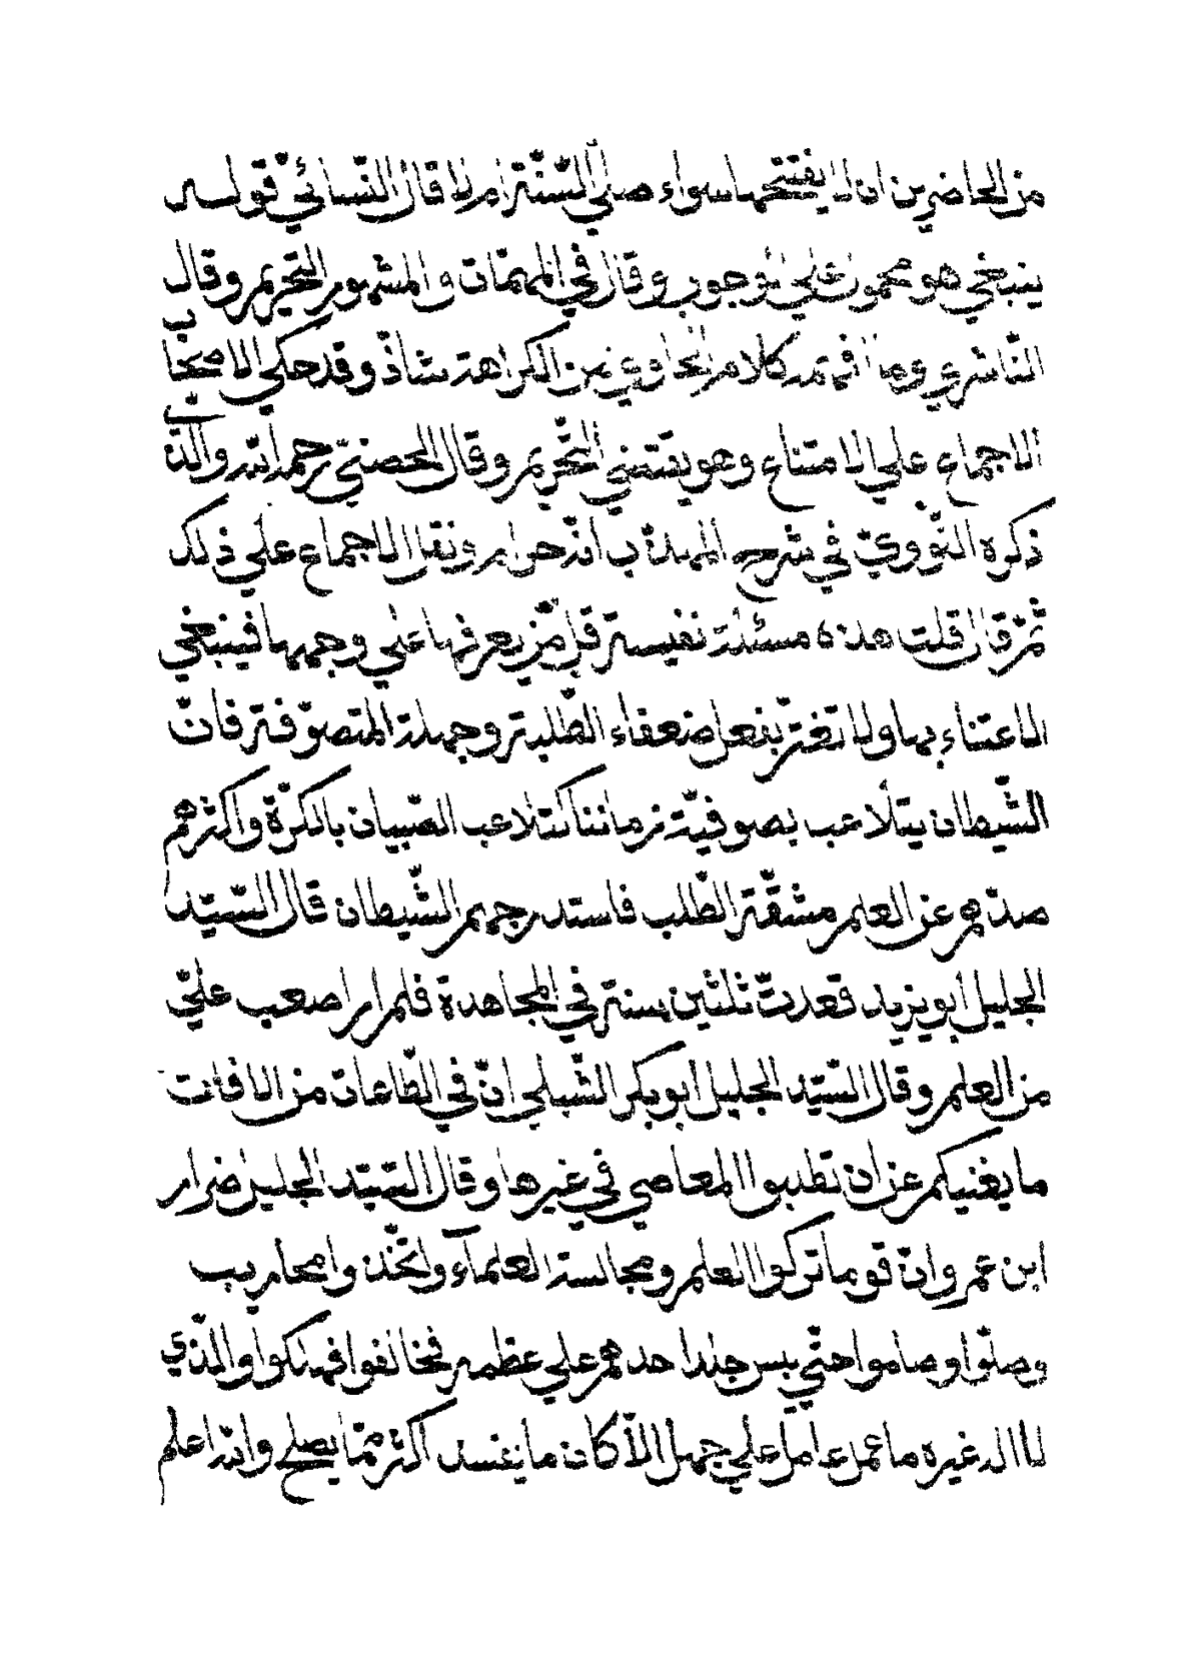 من الحاضرين ان لا يفتتحها سواء صلي السّنّة ام لا قال النّسائيّ قوله
ينبغي هو محمول علي الوجوب وقال في المهمّات والمشهور التحريم وقال
النّاشري وما افهمه كلام الحاوي من الكراهة شاذّ وقد حكي الاصحاب
الاجماع علي الامتناع وهو يقتضي التّحريم وقال الحصنيّ رحمه الله والّذي
ذكره النّوويّ في شرح المهذّب انّه حرام ونقل الاجماع علي ذلك
ثمّ قال قلت هذه مسئلة نفيسة قلّ من يعرفها علي وجهها فينبغي
الاعتناء بها ولا تغترّ بفعل ضعفاء الطّلبة وجهلة المتصوّفة فانّ
الشّيطان يتلاعب بصوفيّة زماننا كتلاعب الصّبيان بالكرّة واكثرهم
صدّهم عن العلم مشقّة الطّلب فاستدرجهم الشّيطان قال السّيّد
الجليل ابو يزيد قعدتّ ثلثين سنة في المجاهدة فلم ار اصعب عليّ
من العلم وقال السّيّد الجليل ابو بكر الشّبلي انّ في الطّاعات من الافات
ما يغنيكم عن ان تطلبوا المعاصي في غيرها وقال السّيّد الجليل ضرار
ابن عمرو انّ قوما تركوا العلم ومجالسة العلمآء واتّخذوا محاريب
وصلّوا وصاموا حتّي يبس جلد احدهم علي عظمه فخالفوا فهلكوا والّذي
لا اله غيره ما عمل عامل علي جهل الّا كان ما يفسد اكثر ممّا يصلح والله اعلم